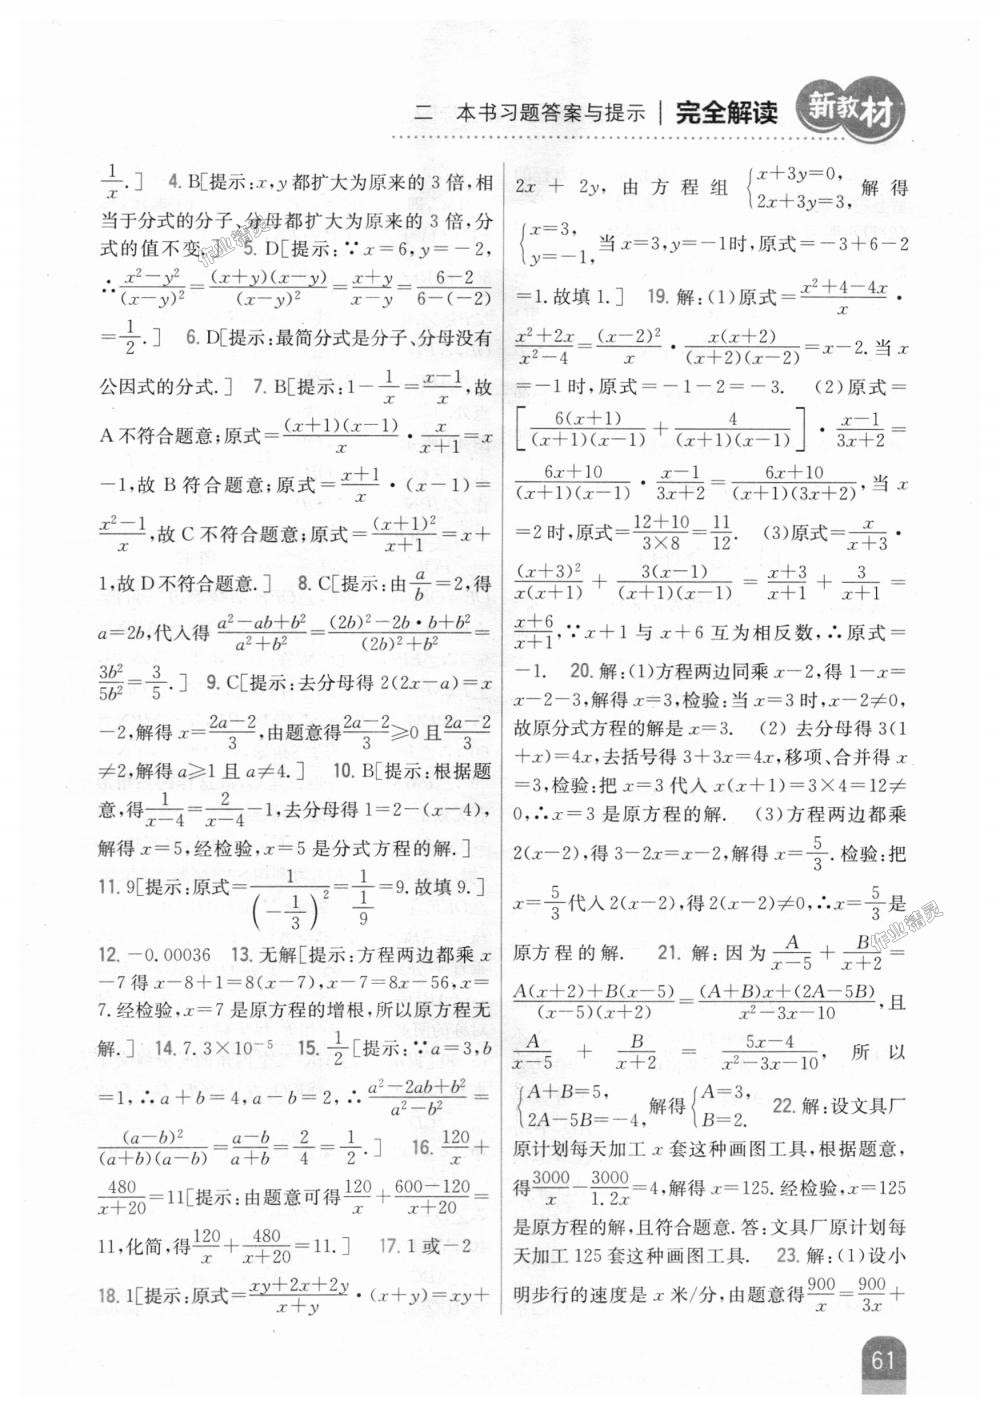 二 本书习题答案与提示 | 完全解读 新教材
1/x.] 4. B[提示:x,y都扩大为原来的3倍,相
当于分式的分子、分母都扩大为原来的3倍,分
式的值不变.] 5. D[提示:∵x=6,y=-2,
∴(x²-y²)/(x-y)²=(x+y)(x-y)/(x-y)²=(x+y)/(x-y)=(6-2)/(6-(-2))
=1/2.] 6. D[提示:最简分式是分子、分母没有
公因式的分式.] 7. B[提示:1-1/x=(x-1)/x,故
A不符合题意;原式=(x+1)(x-1)/x·x/(x+1)=x
-1,故B符合题意;原式=(x+1)/x·(x-1)=
(x²-1)/x,故C不符合题意;原式=(x+1)²/(x+1)=x+
1,故D不符合题意.] 8. C[提示:由a/b=2,得
a=2b,代入得(a²-ab+b²)/(a²+b²)=((2b)²-2b·b+b²)/((2b)²+b²)=
3b²/5b²=3/5.] 9. C[提示:去分母得2(2x-a)=x
-2,解得x=(2a-2)/3,由题意得(2a-2)/3≥0且(2a-2)/3
≠2,解得a≥1且a≠4.] 10. B[提示:根据题
意,得1/(x-4)=2/(x-4)-1,去分母得1=2-(x-4),
解得x=5,经检验,x=5是分式方程的解.]
11. 9[提示:原式=1/(-1/3)²=1/(1/9)=9.故填9.]
12. -0.00036 13. 无解[提示:方程两边都乘x
-7得x-8+1=8(x-7),x-7=8x-56,x=
7.经检验,x=7是原方程的增根,所以原方程无
解.] 14. 7.3×10⁻⁵ 15. 1/2[提示:∵a=3,b
=1,∴a+b=4,a-b=2,∴(a²-2ab+b²)/(a²-b²)=
(a-b)²/(a+b)(a-b)=(a-b)/(a+b)=2/4=1/2.] 16. 120/x+
480/(x+20)=11[提示:由题意可得120/x+(600-120)/(x+20)=
11,化简,得120/x+480/(x+20)=11.] 17. 1或-2
18. 1[提示:原式=(xy+2x+2y)/(x+y)·(x+y)=xy+
2x+2y,由方程组{x+3y=0, 2x+3y=3,解得
{x=3, y=-1,当x=3,y=-1时,原式=-3+6-2
=1.故填1.] 19. 解:(1)原式=(x²+4-4x)/x·
(x²+2x)/(x²-4)=(x-2)²/x·x(x+2)/(x+2)(x-2)=x-2.当x
=-1时,原式=-1-2=-3. (2)原式=
[6(x+1)/(x+1)(x-1)+4/(x+1)(x-1)]·(x-1)/(3x+2)=
(6x+10)/(x+1)(x-1)·(x-1)/(3x+2)=(6x+10)/(x+1)(3x+2),当x
=2时,原式=(12+10)/(3×8)=11/12. (3)原式=x/(x+3)·
(x+3)²/x(x+1)+3(x-1)/(x+1)(x-1)=(x+3)/(x+1)+3/(x+1)=
(x+6)/(x+1),∵x+1与x+6互为相反数,∴原式=
-1. 20. 解:(1)方程两边同乘x-2,得1-x=
x-2-3,解得x=3,检验:当x=3时,x-2≠0,
故原分式方程的解是x=3. (2)去分母得3(1
+x)=4x,去括号得3+3x=4x,移项、合并得x
=3,检验:把x=3代入x(x+1)=3×4=12≠
0,∴x=3是原方程的解. (3)方程两边都乘
2(x-2),得3-2x=x-2,解得x=5/3.检验:把
x=5/3代入2(x-2),得2(x-2)≠0,∴x=5/3是
原方程的解. 21. 解:因为A/(x-5)+B/(x+2)=
(A(x+2)+B(x-5))/(x-5)(x+2)=((A+B)x+(2A-5B))/(x²-3x-10),且
A/(x-5)+B/(x+2)=(5x-4)/(x²-3x-10),所以
{A+B=5, 2A-5B=-4,解得{A=3, B=2. 22. 解:设文具厂
原计划每天加工x套这种画图工具,根据题意,
得3000/x-3000/1.2x=4,解得x=125.经检验,x=125
是原方程的解,且符合题意.答:文具厂原计划每
天加工125套这种画图工具. 23. 解:(1)设小
明步行的速度是x米/分,由题意得900/x=900/3x+
61
作业精灵
作业精灵